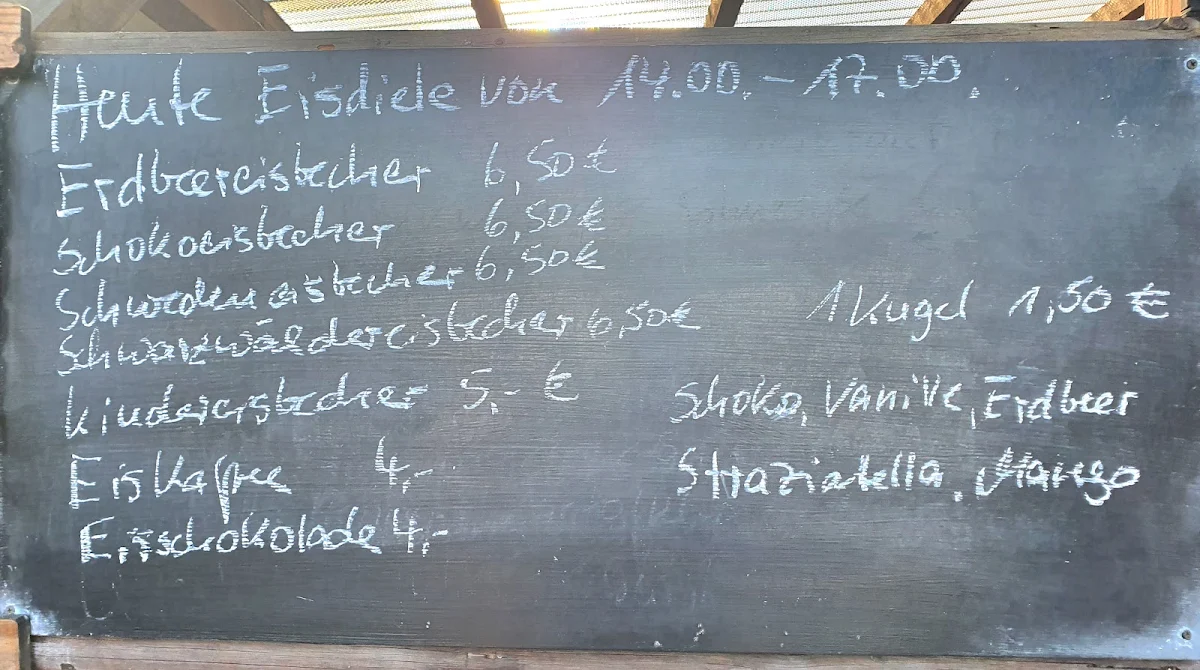 Heute Eisdiele von 14.00.-17.00.
Erdbeereisbecher 6,50€
Schokoeisbecher 6,50€
Schwedeneisbecher 6,50€
Schwarzwäldereisbecher 6,50€
Kindereisbecher 5,- €
Eiskaffee 4,-
Eisschokolade 4,-
1 Kugel 1,50 €
Schoko, Vanille, Erdbeer
Straziatella, Mango